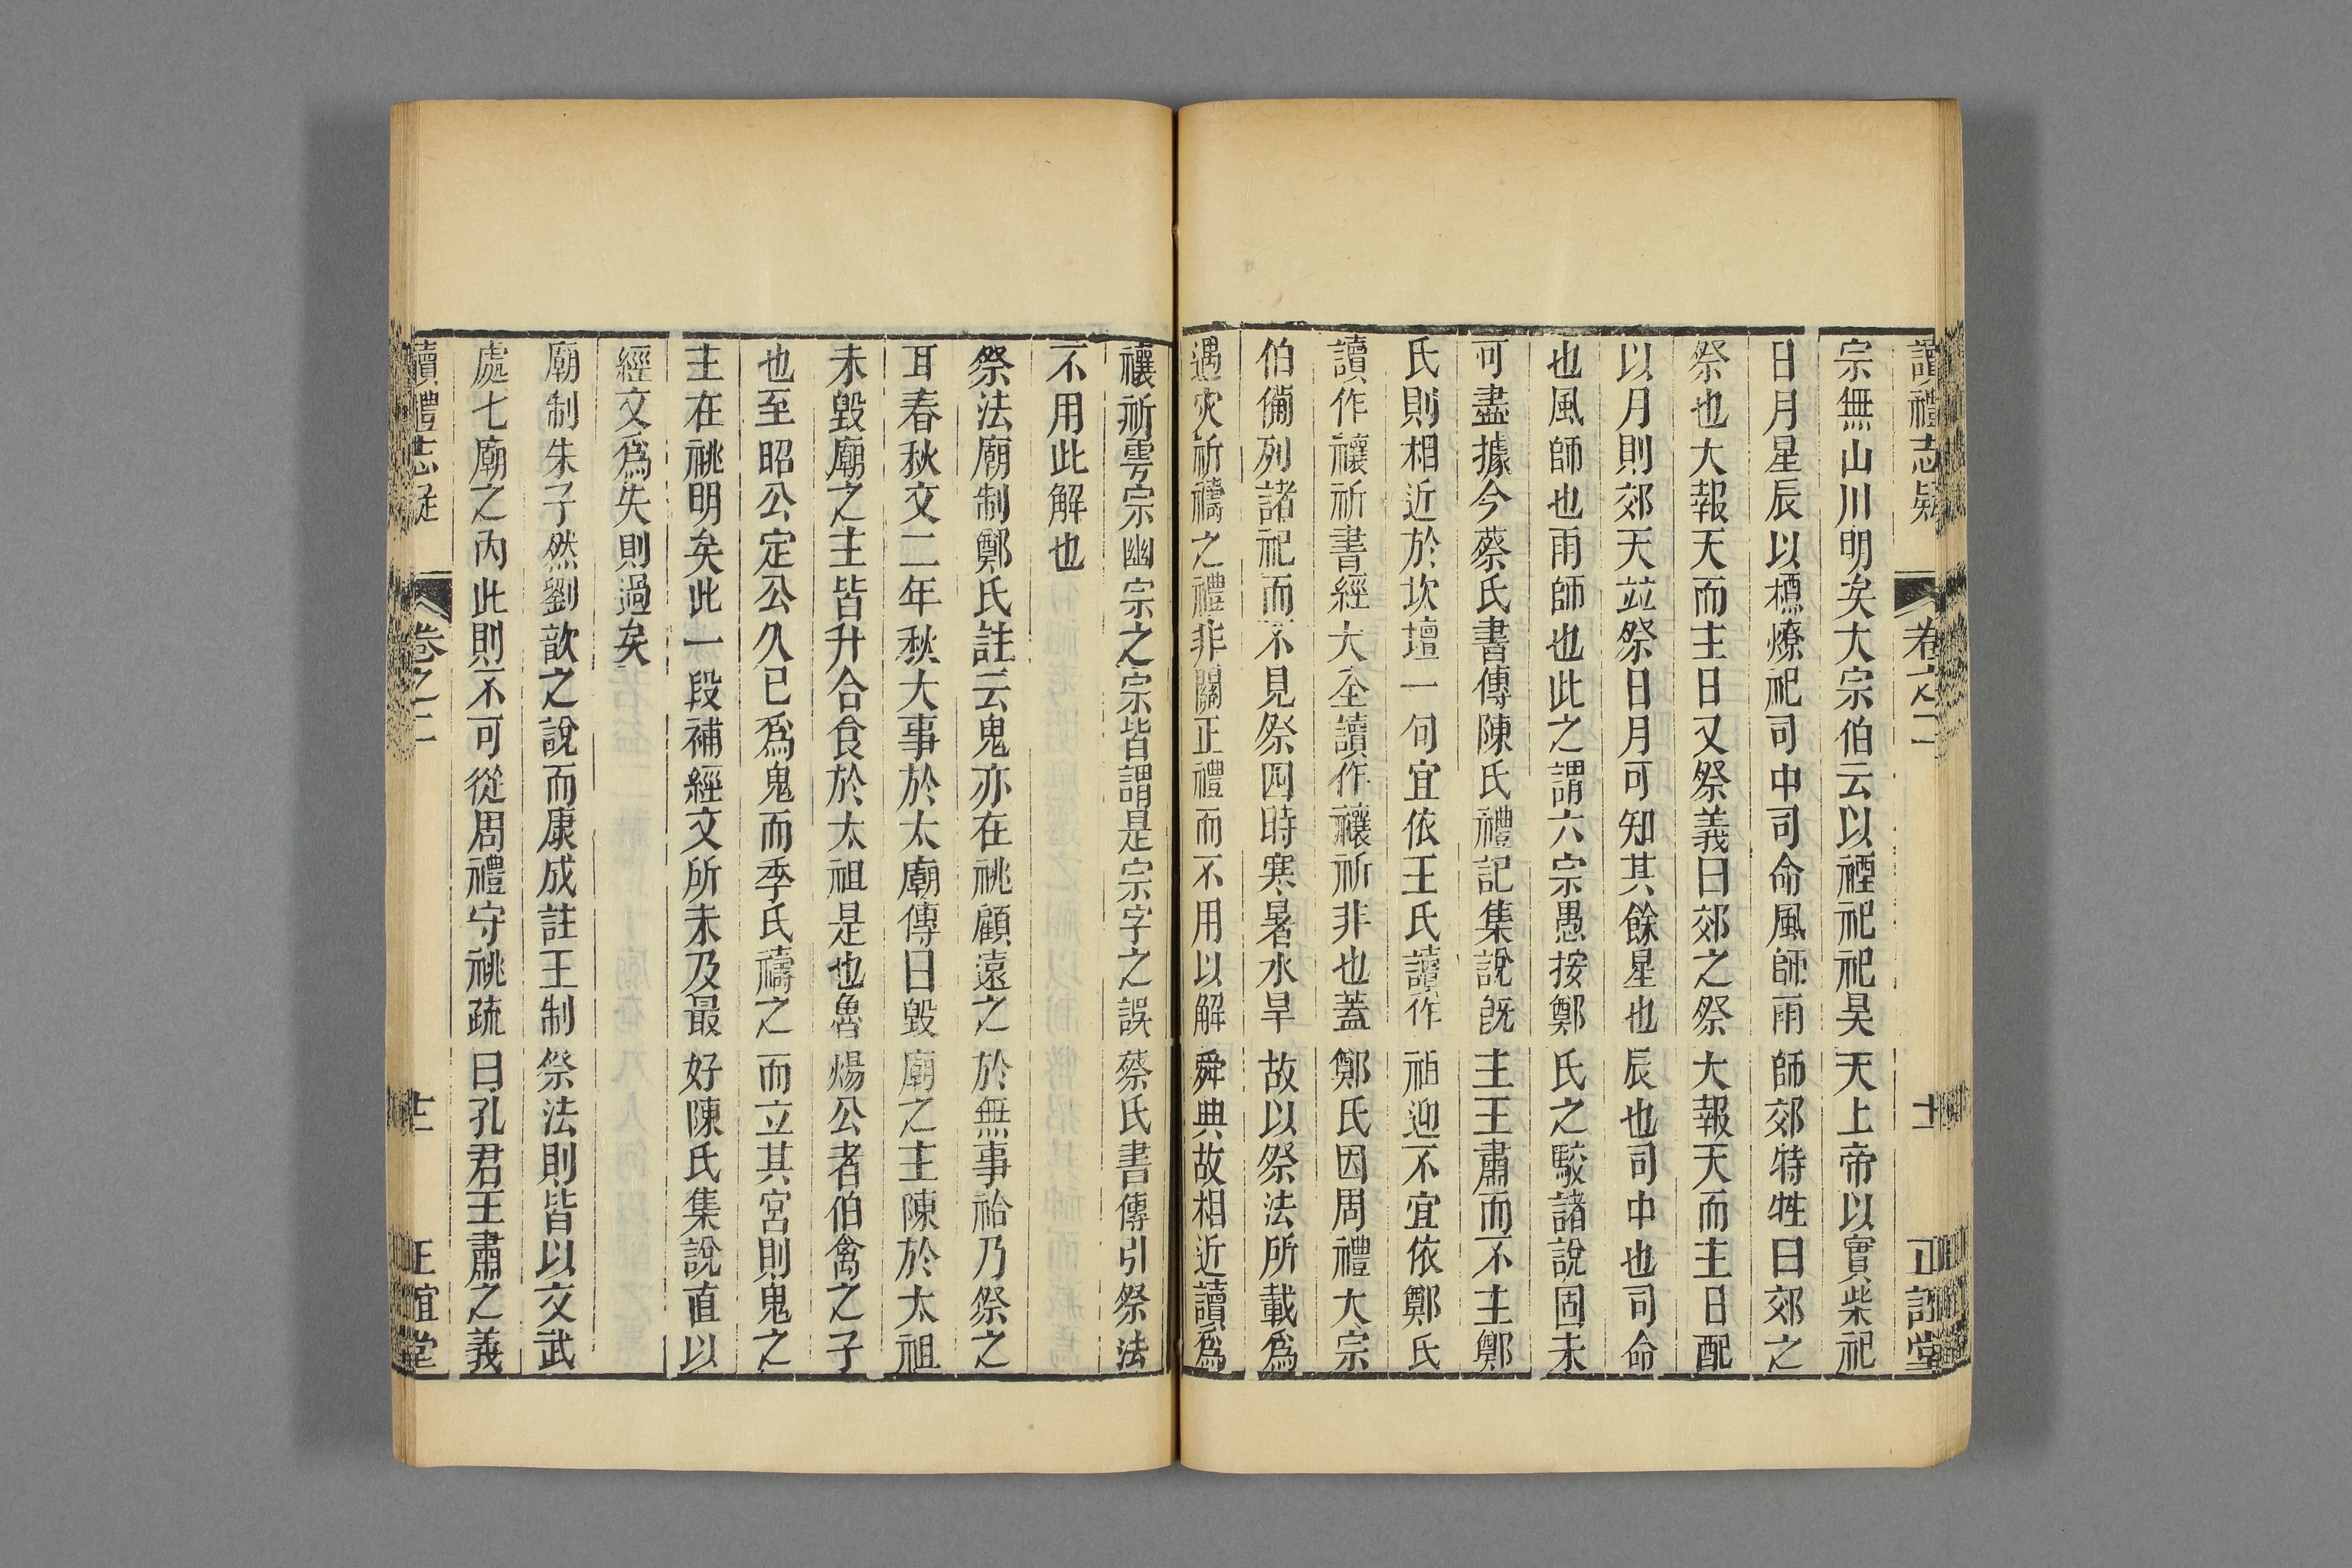 讀禮志疑 卷之二 十一 正誼堂
宗無山川明矣大宗伯云以禋祀祀昊天上帝以實柴祀
日月星辰以槱燎祀司中司命風師雨師郊特牲曰郊之
祭也大報天而主日又祭義曰郊之祭大報天而主日配
以月則郊天並祭日月可知其餘星也辰也司中也司命
也風師也雨師也此之謂六宗愚按鄭氏之駁諸說固未
可盡據今蔡氏書傳陳氏禮記集說既主王肅而不主鄭
氏則相近於坎壇一句宜依王氏讀作祖迎不宜依鄭氏
讀作禳祈書經大全讀作禳祈非也蓋鄭氏因周禮大宗
伯僃列諸祀而不見祭四時寒暑水旱故以祭法所載為
遇灾祈禱之禮非關正禮而不用以解舜典故相近讀爲
禳祈雩宗幽宗之宗皆謂是宗字之誤蔡氏書傳引祭法
不用此解也
祭法廟制鄭氏註云鬼亦在祧顧遠之於無事祫乃祭之
耳春秋文二年秋大事於太廟傳曰毀廟之主陳於太祖
未毀廟之主皆升合食於太祖是也魯煬公者伯禽之子
也至昭公定公久已爲鬼而季氏禱之而立其宮則鬼之
主在祧明矣此一段補經文所未及最好陳氏集說直以
經文爲失則過矣
廟制朱子然劉歆之說而康成註王制祭法則皆以文武
處七廟之內此則不可從周禮守祧疏曰孔君王肅之義
讀禮志疑 卷之二 十二 正誼堂